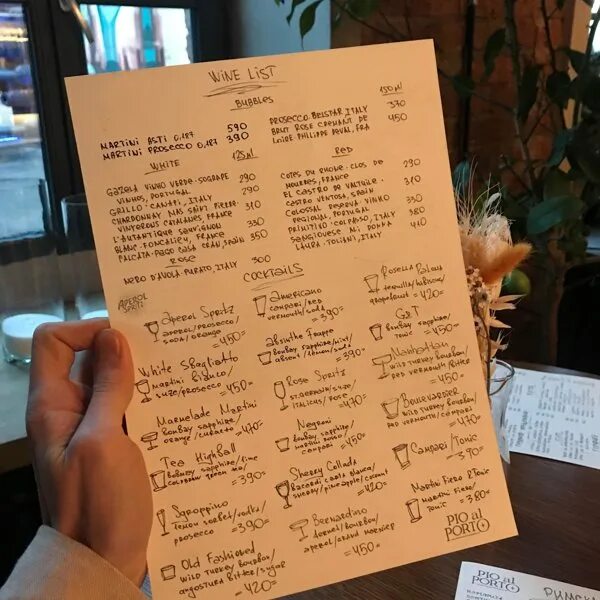 WINE LIST
BUBBLES
MARTINI ASTI 0,187 590
MARTINI PROSECCO 0,187 390
150 ml
PROSECCO, BELSTAR, ITALY 370
BRUT ROSE CREMANT DE 450
LOIRE PHILIPPE
WHITE 125 ml
GAZELA VINHO VERDE · SOGRAPE 290
VINHOS, PORTUGAL
GRILLO · CANAPI, ITALY 290
CHARDONNAY MAS SAINT PIERRE 310
VIGNERONS CATALANES, FRANCE
L'AUTANTIQUE SAUVIGNON 330
BLANC · FONCALIEU, FRANCE
CALCATA · PAGO CASA GRAN, SPAIN 350
ROSE
NERO D'AVOLA PURATO, ITALY 300
RED
COTES DU RHONE · CLOS DE 290
FRANCE
EL CASTRO DE VALTUILLE 310
CASTRO VENTOSA, SPAIN
COLOSSAL RESERVA · VINHO 330
REGIONAL, PORTUGAL
PRIMITIVO · COLPASSO, ITALY 380
SANGIOVESE MI DONNA 410
LAURA · TOLIANI, ITALY
COCKTAILS
APEROL
SPRITZ
Aperol Spritz
APEROL/PROSECCO/
SODA/ORANGE
=450=
White Sbagliatto
MARTINI BIANCO/
SUZE/PROSECCO
=450=
Marmelade Martini
BOMBAY SAPPHIRE/
ORANGE/CURACAO =470=
Tea Highball
BOMBAY SAPPHIRE/LIME
TEA/
=390=
Sgroppino
LEMON SORBET/VODKA/
PROSECCO =390=
Old Fashioned
WILD TURKEY BOURBON/
ANGOSTURA BITTER/SUGAR
=420=
Americano
CAMPARI/RED
VERMOUTH/SODA
=390=
Absinthe Frappe
BOMBAY SAPPHIRE/MINT/
ABSENT/LEMON/SODA
=390=
Rose Spritz
ST. GERMAIN/SUZE/
ITALICUS/ROSE
=470=
Negroni
BOMBAY SAPPHIRE/
MARTINI ROSSO/
CAMPARI =450=
Sherry Collada
BACARDI CARTA BLANCA/
SHERRY/PINEAPPLE/COCONUT
=420=
Bernardino
BOURBON/
APEROL/GRAND MARNIER
=450=
Rosella Paloma
TEQUILA/HIBISCUS/
GRAPEFRUIT =420=
G&T
BOMBAY SAPPHIRE/
TONIC =450=
Manhattan
WILD TURKEY BOURBON/
RED VERMOUTH/BITTER
=450=
Boulevardier
WILD TURKEY BOURBON/
RED VERMOUTH/CAMPARI
=470=
Campari/Tonic
=390=
Martini Fiero & Tonic
MARTINI FIERO/
TONIC =380=
PIO al
PORTO
PIO al
PORTO